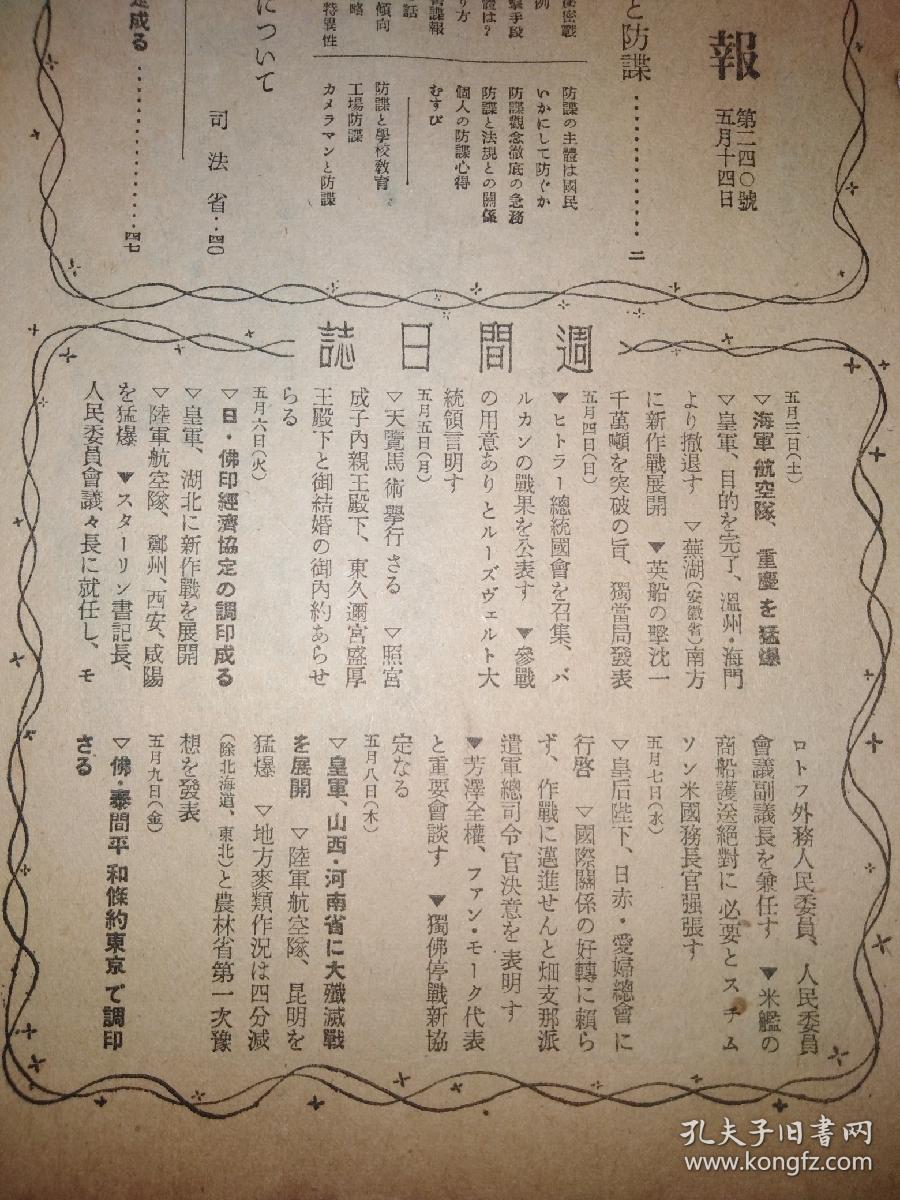 報
第二四〇號
五月十四日
と防諜……………… 二
防諜の主體は國民
いかにして防ぐか
防諜觀念徹底の急務
防諜と法規との關係
個人の防諜心得
むすび
防諜と學校敎育
工場防諜
カメラマンと防諜
祕密戰
例
擊手段
體は?
り方
諜報
話
傾向
略
特異性
について
司法省‥四〇
成る……………… 四七
週間日誌
五月三日(土)
▽海軍航空隊、重慶を猛爆
▽皇軍、目的を完了、溫州・海門
より撤退す ▽蕪湖(安徽省)南方
に新作戰展開 ▼英船の擊沈一
千萬噸を突破の旨、獨當局發表
五月四日(日)
▼ヒトラー總統國會を召集、バ
ルカンの戰果を公表す ▼參戰
の用意ありとルーズヴェルト大
統領言明す
五月五日(月)
▽天覽馬術擧行さる ▽照宮
成子內親王殿下、東久邇宮盛厚
王殿下と御結婚の御內約あらせ
らる
五月六日(火)
▽日・佛印經濟協定の調印成る
▽皇軍、湖北に新作戰を展開
▽陸軍航空隊、鄭州、西安、咸陽
を猛爆 ▼スターリン書記長、
人民委員會議々長に就任し、モ
ロトフ外務人民委員、人民委員
會議副議長を兼任す ▼米艦の
商船護送絕對に必要とスチム
ソン米國務長官强張す
五月七日(水)
▽皇后陛下、日赤・愛婦總會に
行啓 ▽國際關係の好轉に賴ら
ず、作戰に邁進せんと畑支那派
遣軍總司令官決意を表明す
▼芳澤全權、ファン・モーク代表
と重要會談す ▼獨佛停戰新協
定なる
五月八日(木)
▽皇軍、山西・河南省に大殲滅戰
を展開 ▽陸軍航空隊、昆明を
猛爆 ▽地方麥類作況は四分減
(除北海道、東北)と農林省第一次豫
想を發表
五月九日(金)
▽佛・泰間平和條約東京で調印
さる
孔夫子旧书网
www.kongfz.com